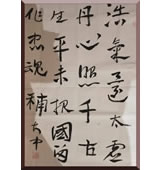 浩氣還太虛
丹心照千古
生平未報國
作忠魂補